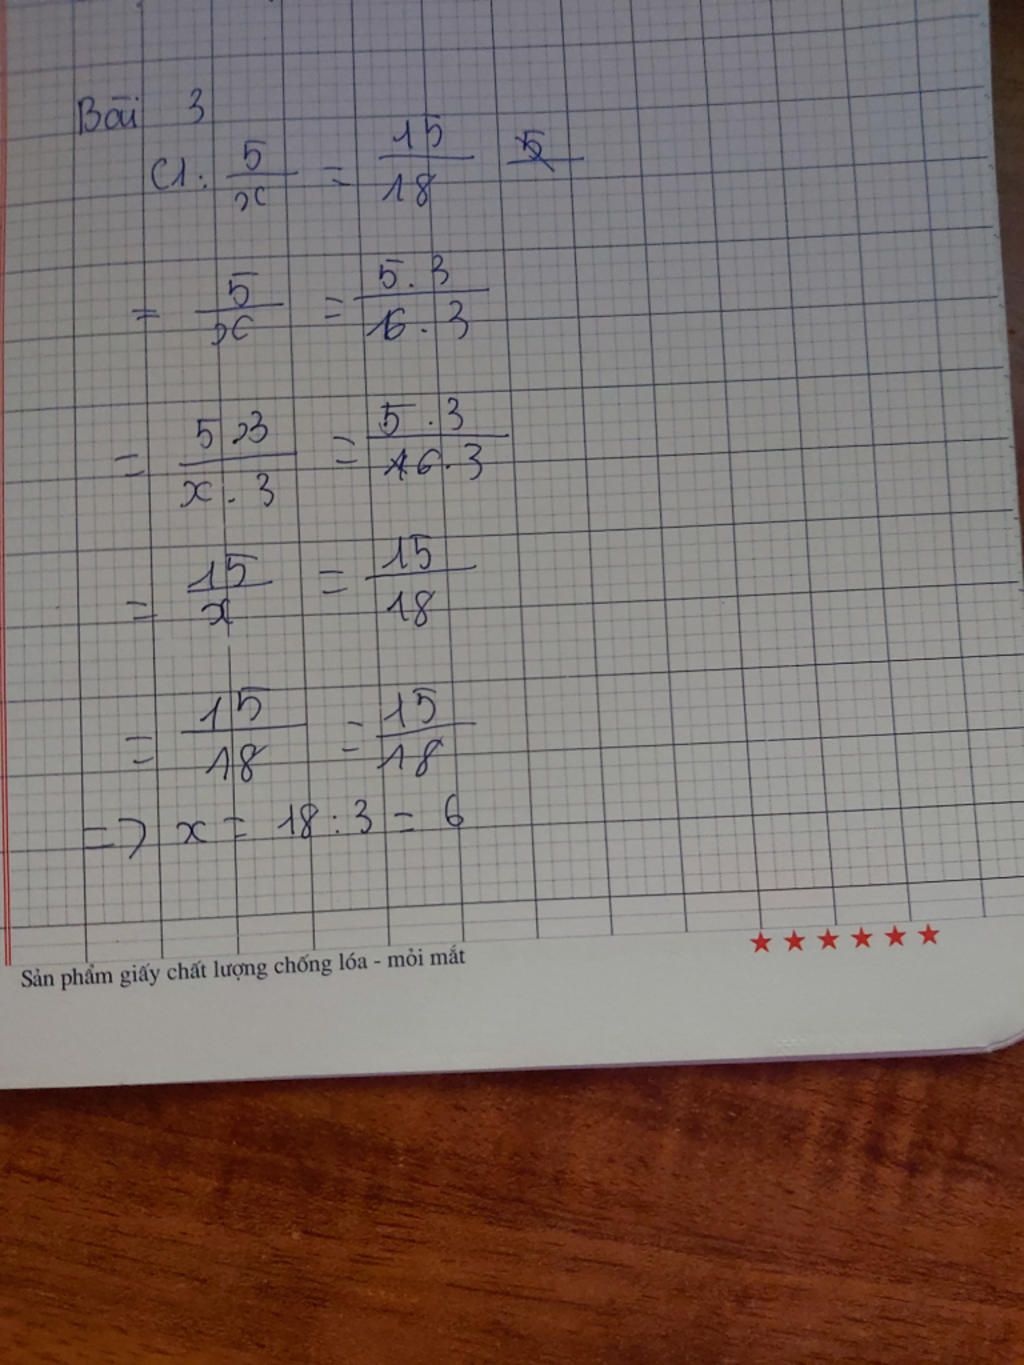 Bài 3
C1: 5/x = 15/18
= 5/x = 5.3/6.3
= 5.3/x.3 = 5.3/6.3
= 15/x = 15/18
= 15/18 = 15/18
=> x = 18:3 = 6
Sản phẩm giấy chất lượng chống lóa - mỏi mắt